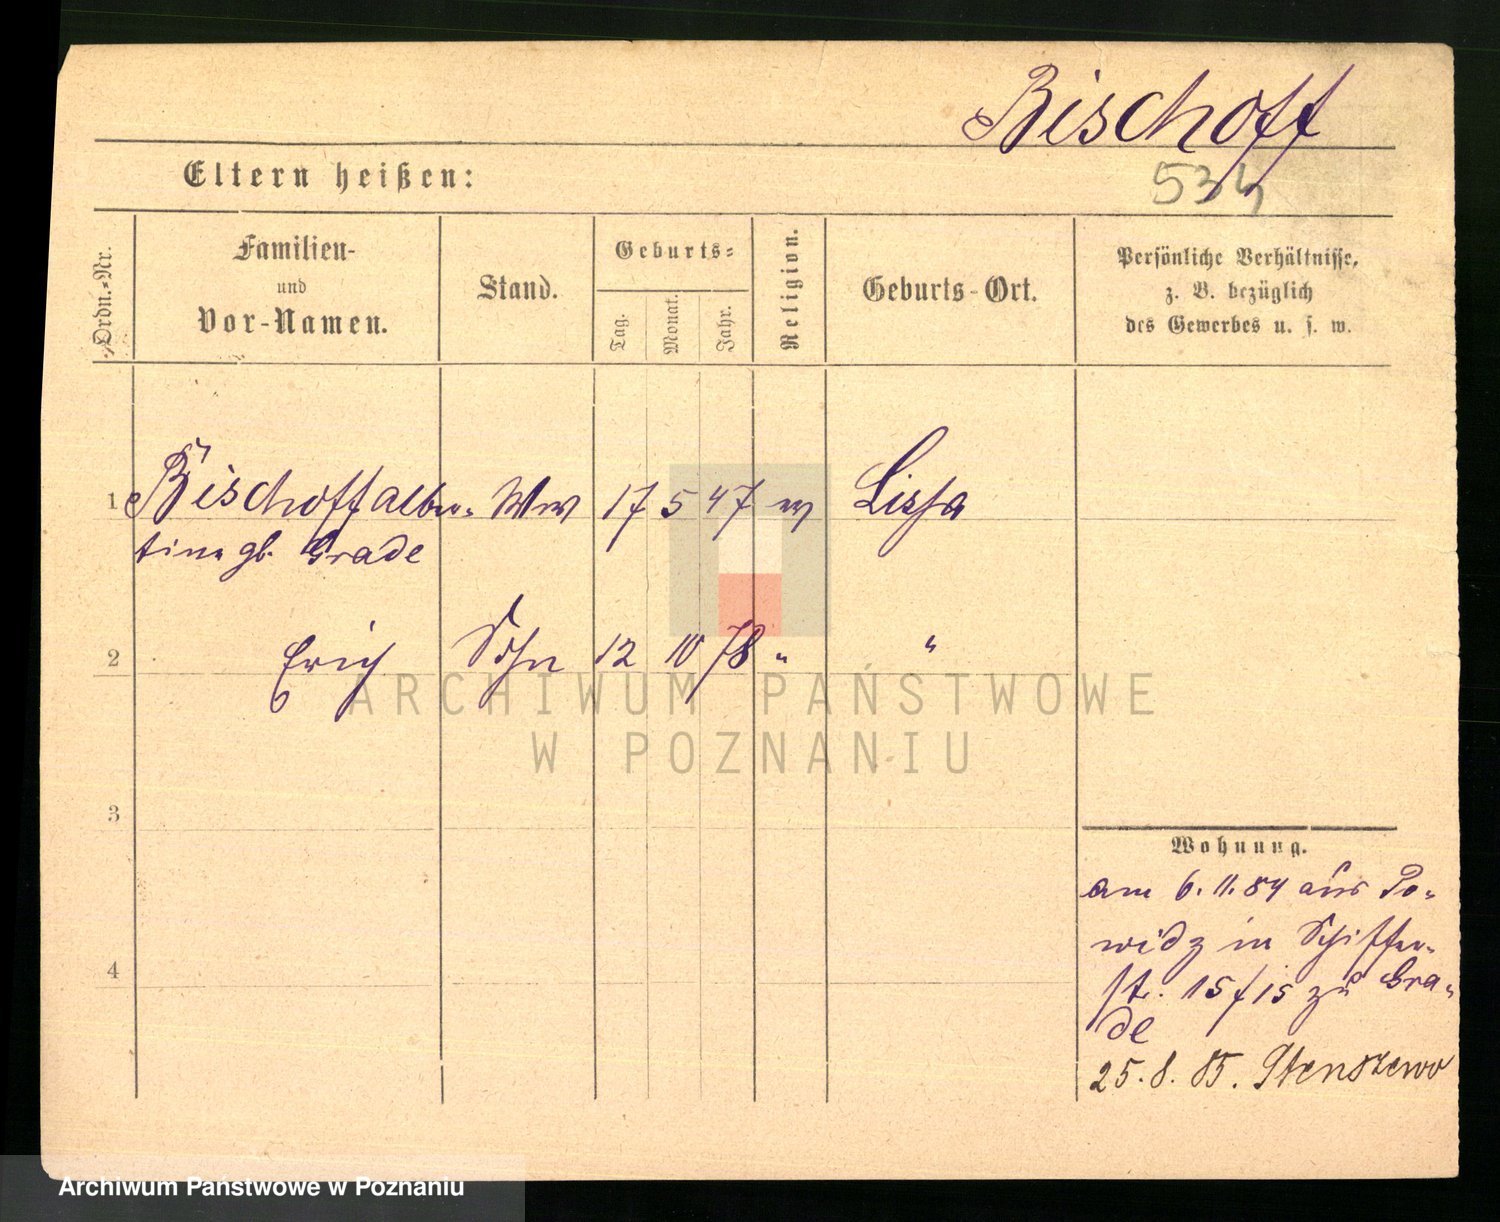 Bischoff
534
Eltern heißen:
Ordn.-Nr.
Familien-
und
Vor-Namen.
Stand.
Geburts-
Tag.
Monat.
Jahr.
Religion.
Geburts-Ort.
Persönliche Verhältnisse,
z. B. bezüglich
des Gewerbes u. s. w.
1 Bischoff Alber- Ww 17 5 47 ev Lissa
tine gb. Grade
2 Erich Sohn 12 10 78 " "
ARCHIWUM PAŃSTWOWE
W POZNANIU
3
4
Wohnung.
am 6.11.84 aus Po-
widz in Schiffer-
str. 15/15 zu Gra-
de
25.8.85. Stenszewo
Archiwum Państwowe w Poznaniu